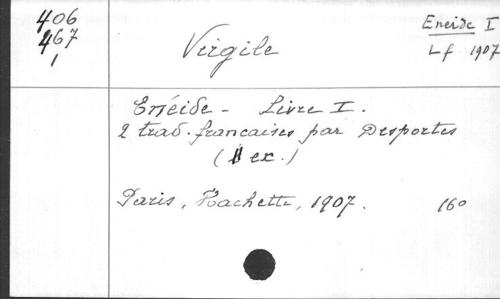 406
467
1
Virgile
Eneide I
Lf 1907
Enéide - Livre I.
2 trad. francaises par Desportes
( ex.)
Paris, Hachette, 1907.
16°